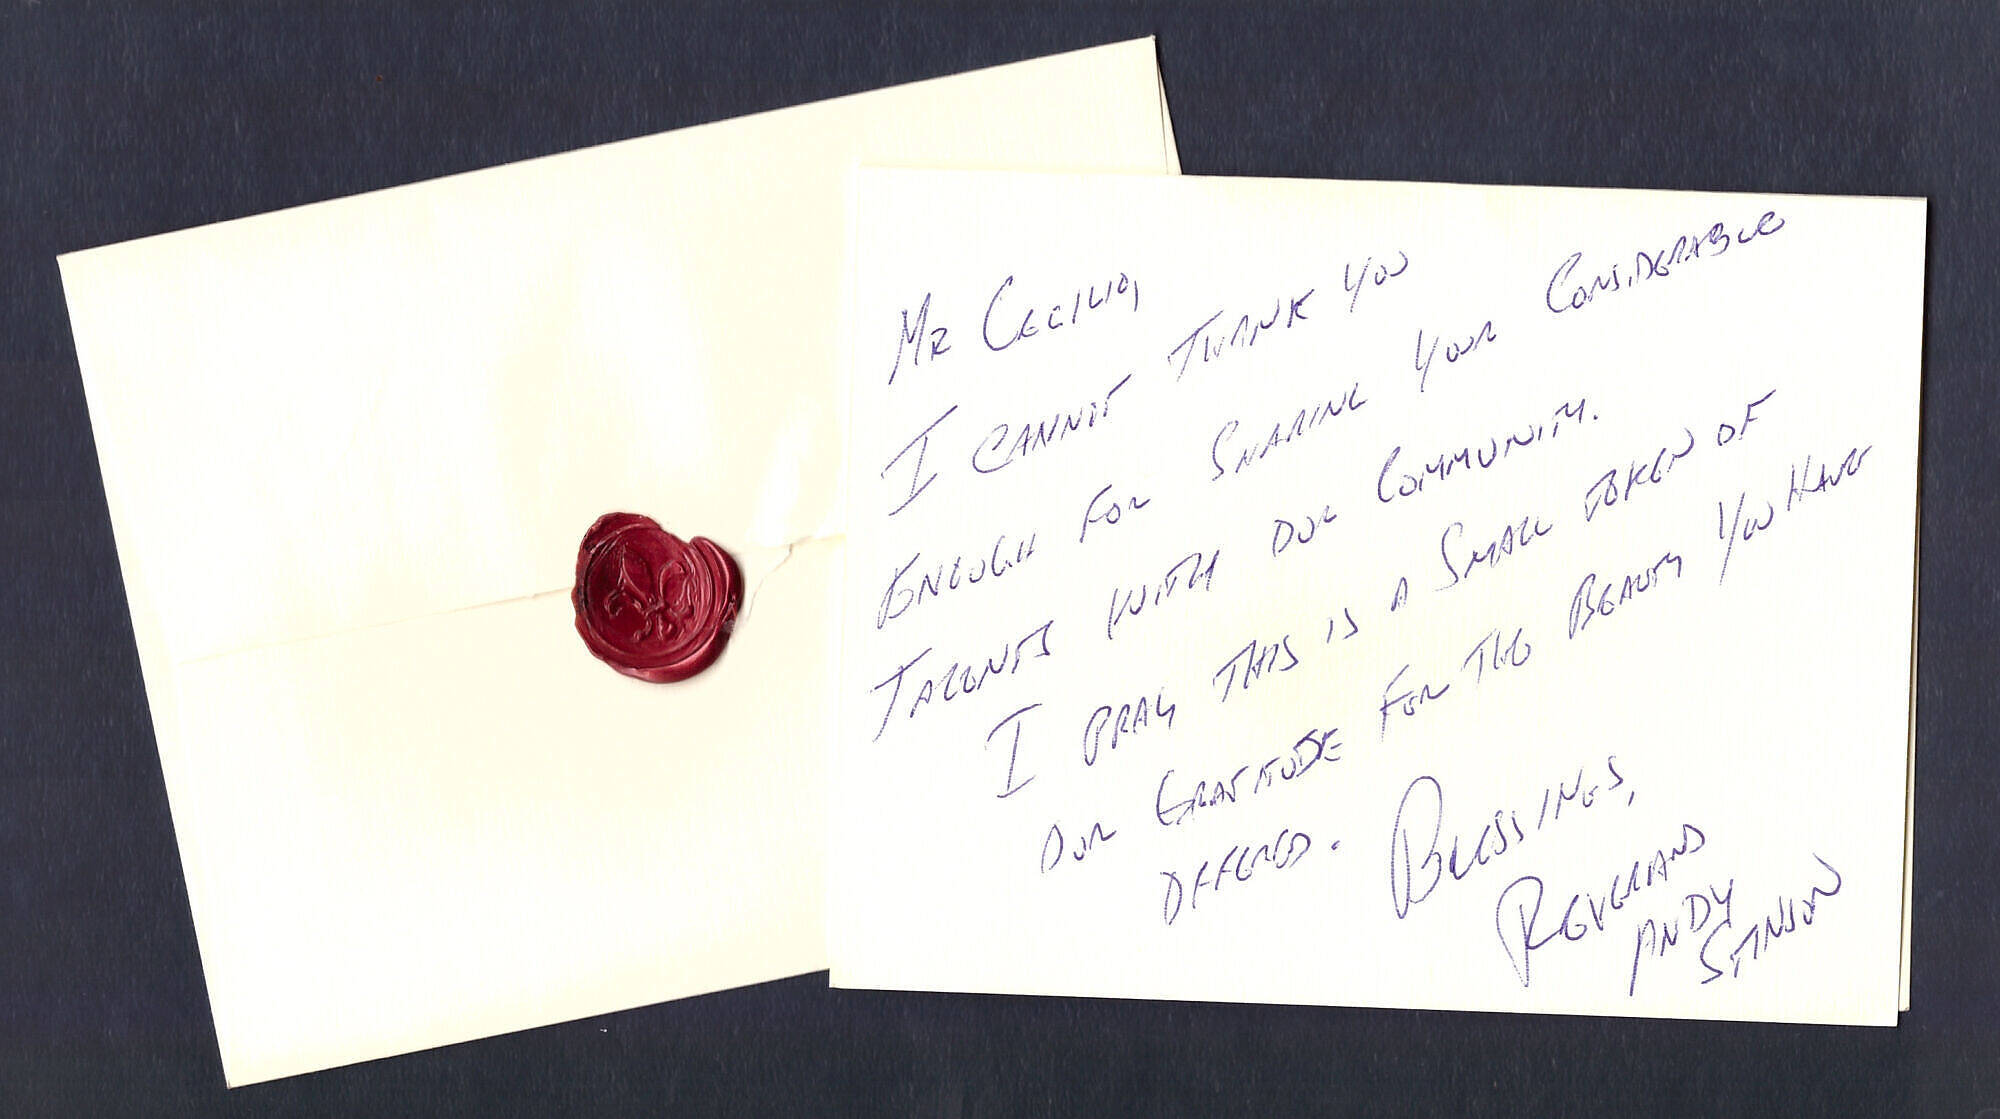 Mr Cecilio,
I cannot thank you
enough for sharing your considerable
talents with our community.
I pray this is a small token of
our gratitude for the beauty you have
offered. Blessings,
Reverand
Andy
Stinson